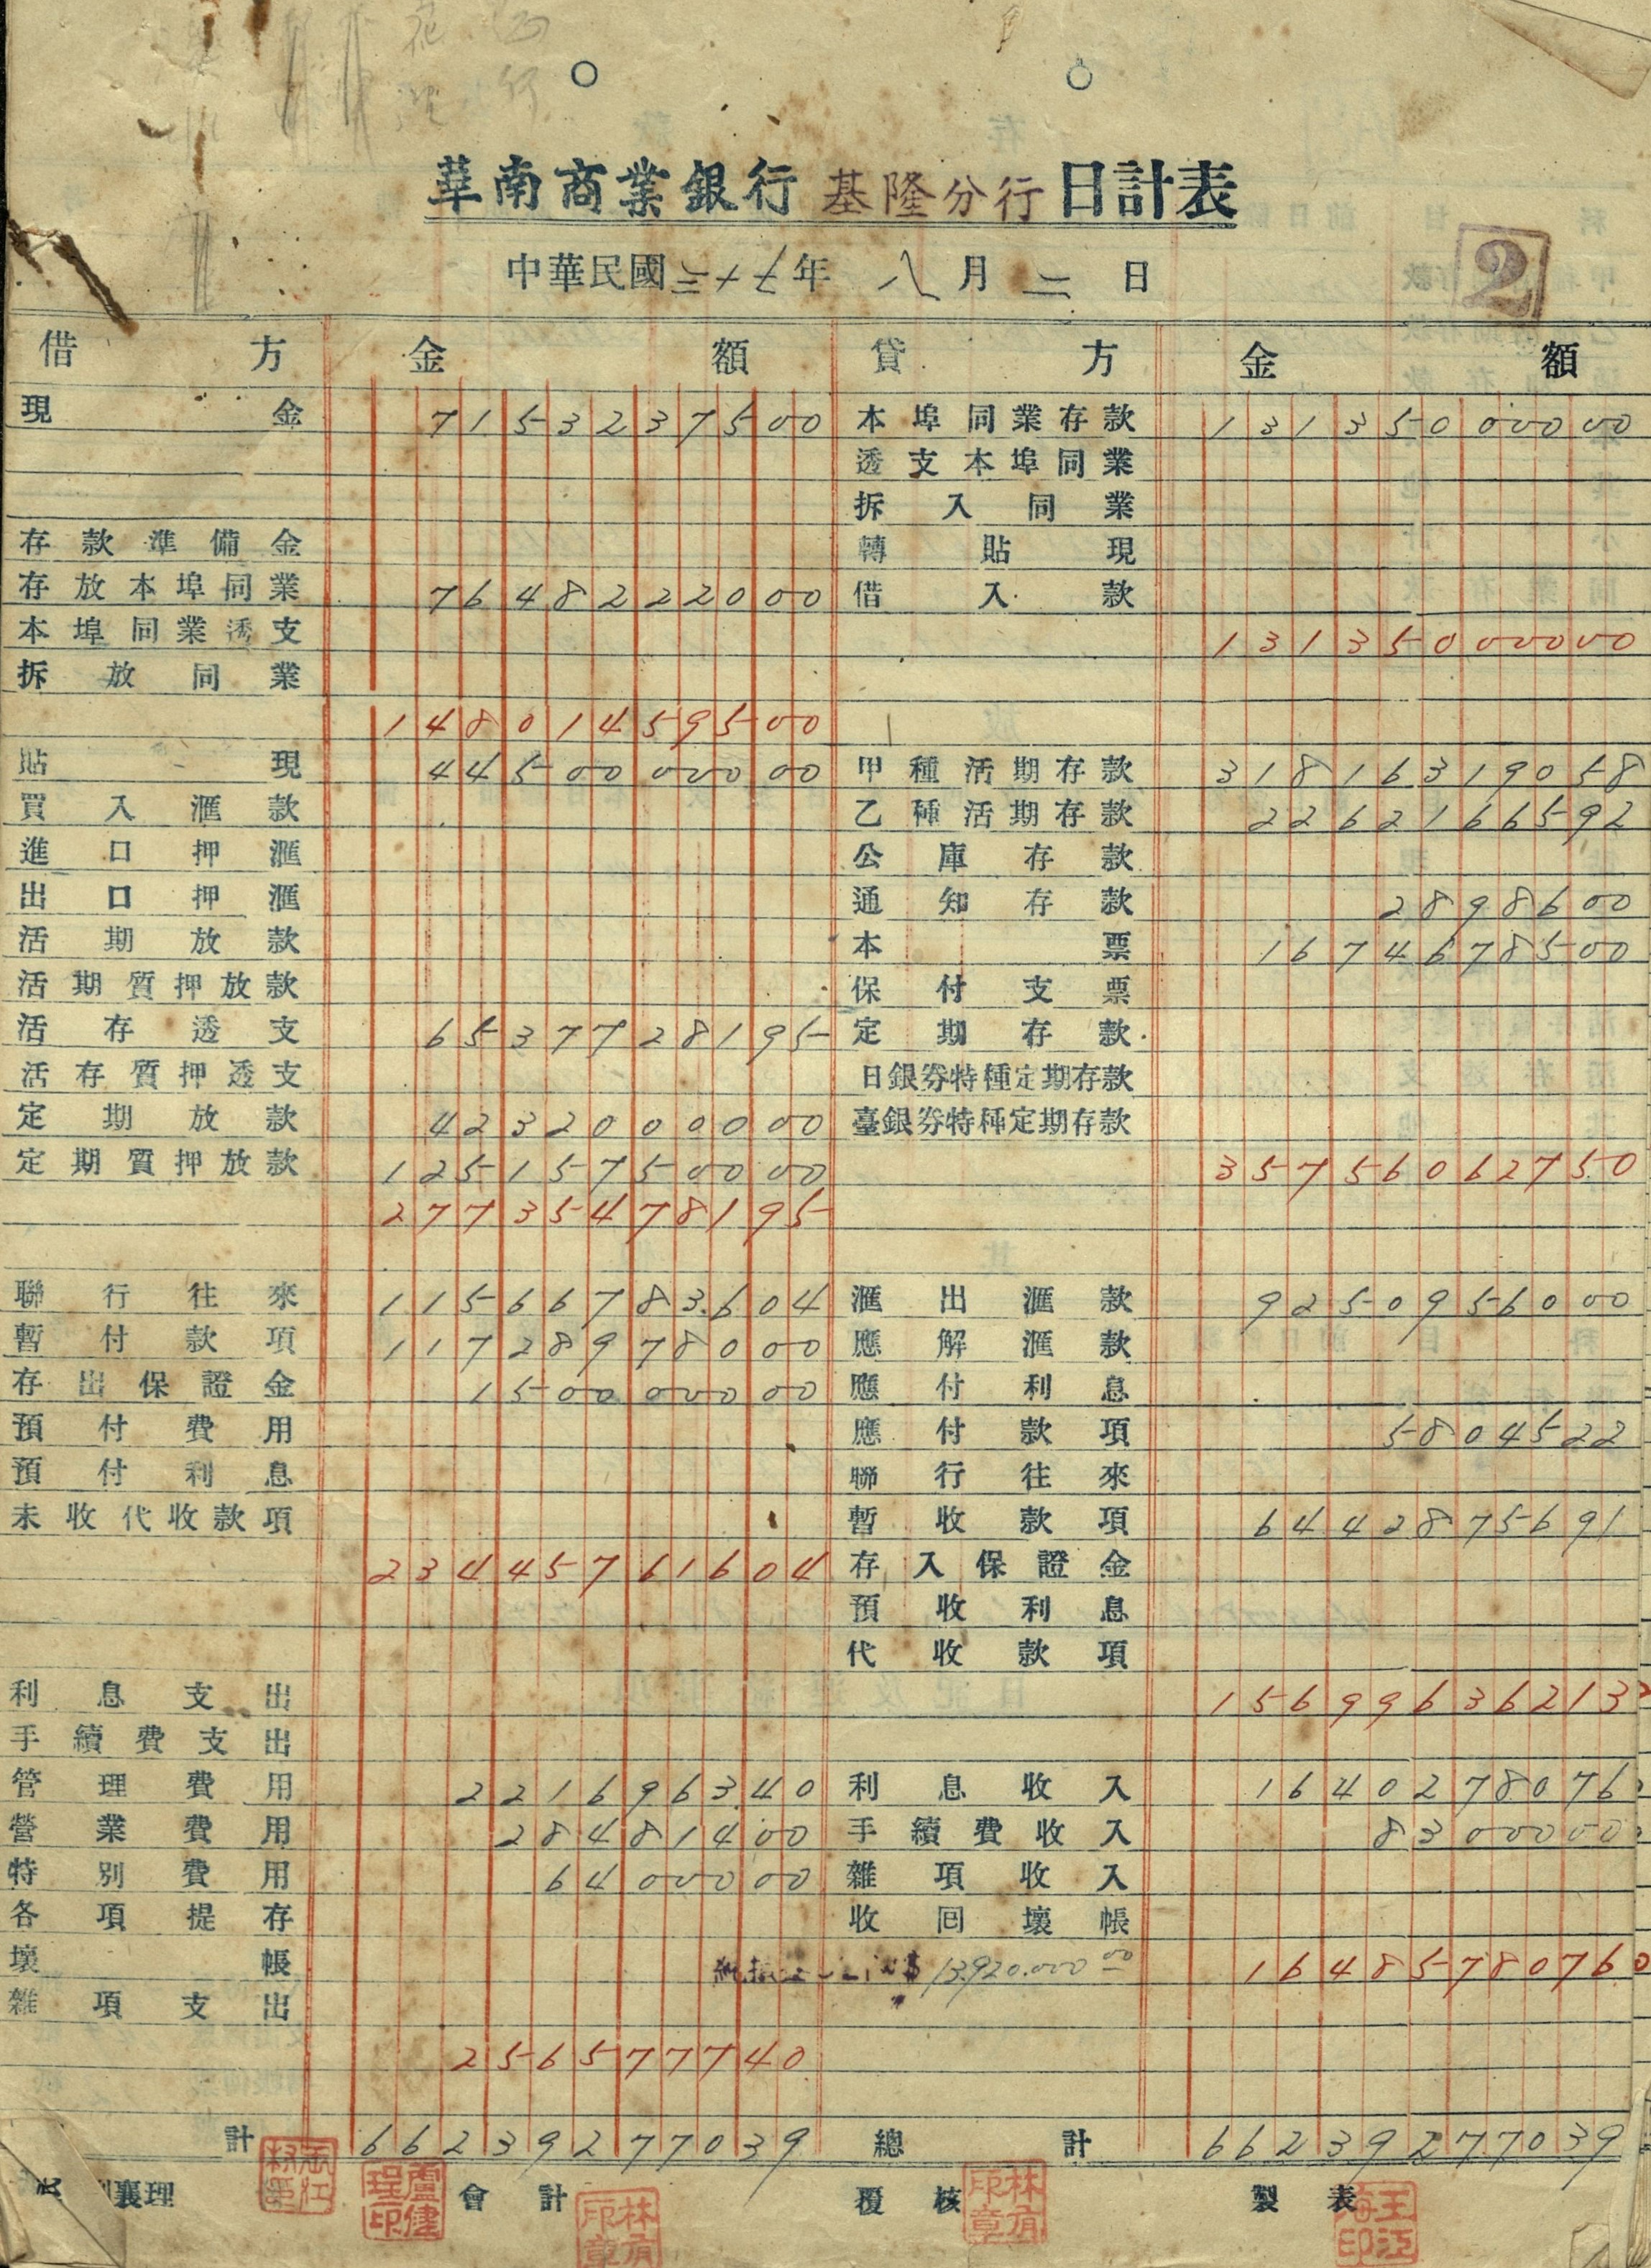 華南商業銀行 基隆分行 日計表
中華民國三十七年 八月二日
2
借方 金額 貸方 金額
現金 7153237500 本埠同業存款 13135000000
透支本埠同業
拆入同業
存款準備金 轉貼現
存放本埠同業 7648222000 借入款
本埠同業透支 13135000000
拆放同業
14801459500
貼現 4450000000 甲種活期存款 31816319058
買入滙款 乙種活期存款 2262166592
進口押滙 公庫存款
出口押滙 通知存款 2898600
活期放款 本票 1674678500
活期質押放款 保付支票
活存透支 6537728195 定期存款
活存質押透支 日銀券特種定期存款
定期放款 4232000000 臺銀券特種定期存款
定期質押放款 12515750000 35756062750
27735478195
聯行往來 11566783604 滙出滙款 9250956000
暫付款項 11728978000 應解滙款
存出保證金 150000000 應付利息
預付費用 應付款項 5804522
預付利息 聯行往來
未收代收款項 暫收款項 6442875691
23445761604 存入保證金
預收利息
代收款項
利息支出 15699636213
手續費支出
管理費用 221696340 利息收入 1640278076
營業費用 28481400 手續費收入 8300000
特別費用 6400000 雜項收入
各項提存 收回壞帳
壞帳 13,920,000.00 1648578076
雜項支出
256577740
計 66239277039 總計 66239277039
襄理 盧健珵印 會計 林有印章 覆核 林有印章 製表 王江海印